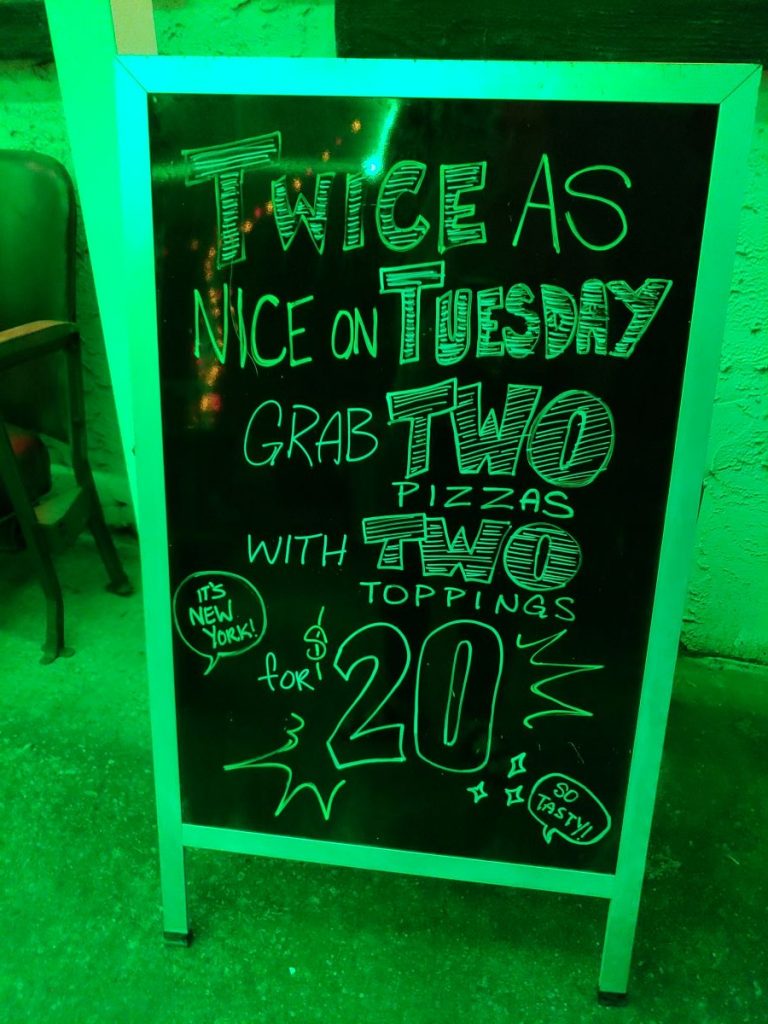 TWICE AS
NICE ON TUESDAY
GRAB TWO
PIZZAS
WITH TWO
TOPPINGS
IT'S
NEW
YORK!
for $20
SO
TASTY!